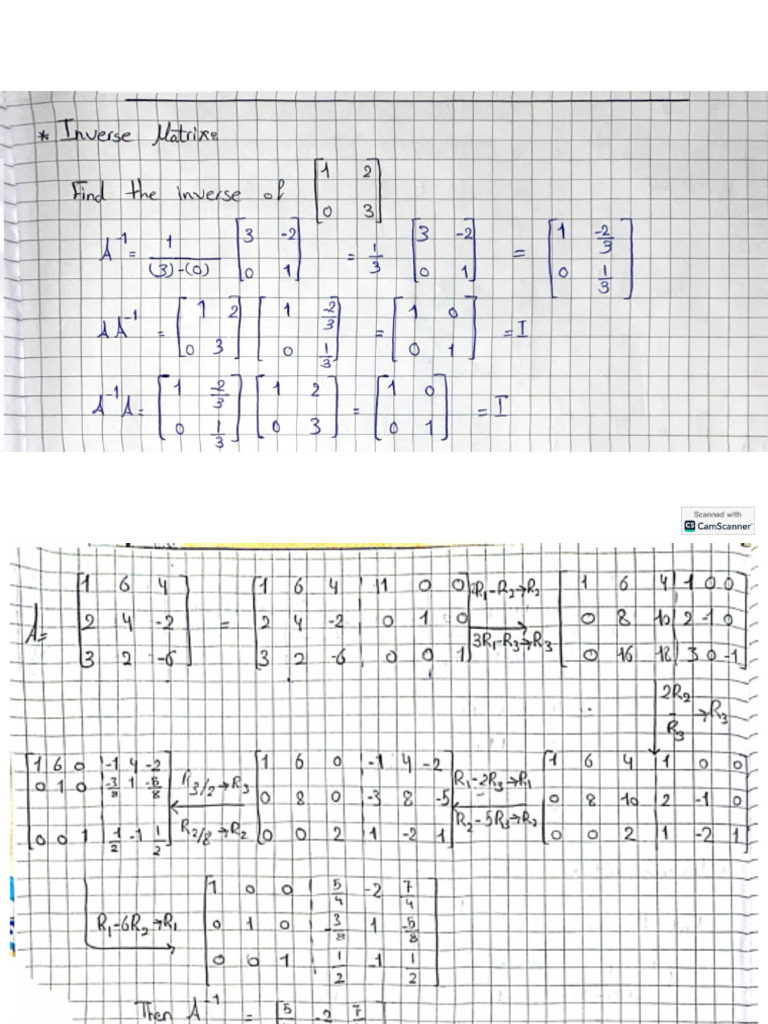 * Inverse Matrixe
Find the inverse of [1 2
0 3]
A⁻¹ = 1/((3)-(0)) [3 -2
0 1] = 1/3 [3 -2
0 1] = [1 -2/3
0 1/3]
AA⁻¹ = [1 2
0 3] [1 -2/3
0 1/3] = [1 0
0 1] = I
A⁻¹A = [1 -2/3
0 1/3] [1 2
0 3] = [1 0
0 1] = I
Scanned with
CS CamScanner
A = [1 6 4
2 4 -2
3 2 -6] = [1 6 4 | 1 0 0
2 4 -2 | 0 1 0
3 2 -6 | 0 0 1]
2R₁-R₂→R₂
3R₁-R₃→R₃
[1 6 4 | 1 0 0
0 8 10 | 2 -1 0
0 16 18 | 3 0 -1]
2R₂
-R₃ →R₃
[1 6 4 | 1 0 0
0 8 10 | 2 -1 0
0 0 2 | 1 -2 1]
R₁-2R₃→R₁
R₂-5R₃→R₂
[1 6 0 | -1 4 -2
0 8 0 | -3 8 -5
0 0 2 | 1 -2 1]
R₃/2→R₃
R₂/8→R₂
[1 6 0 | -1 4 -2
0 1 0 | -3/8 1 -5/8
0 0 1 | 1/2 -1 1/2]
R₁-6R₂→R₁
[1 0 0 | 5/4 -2 7/4
0 1 0 | -3/8 1 -5/8
0 0 1 | 1/2 -1 1/2]
Then A⁻¹ = [5 -2 7